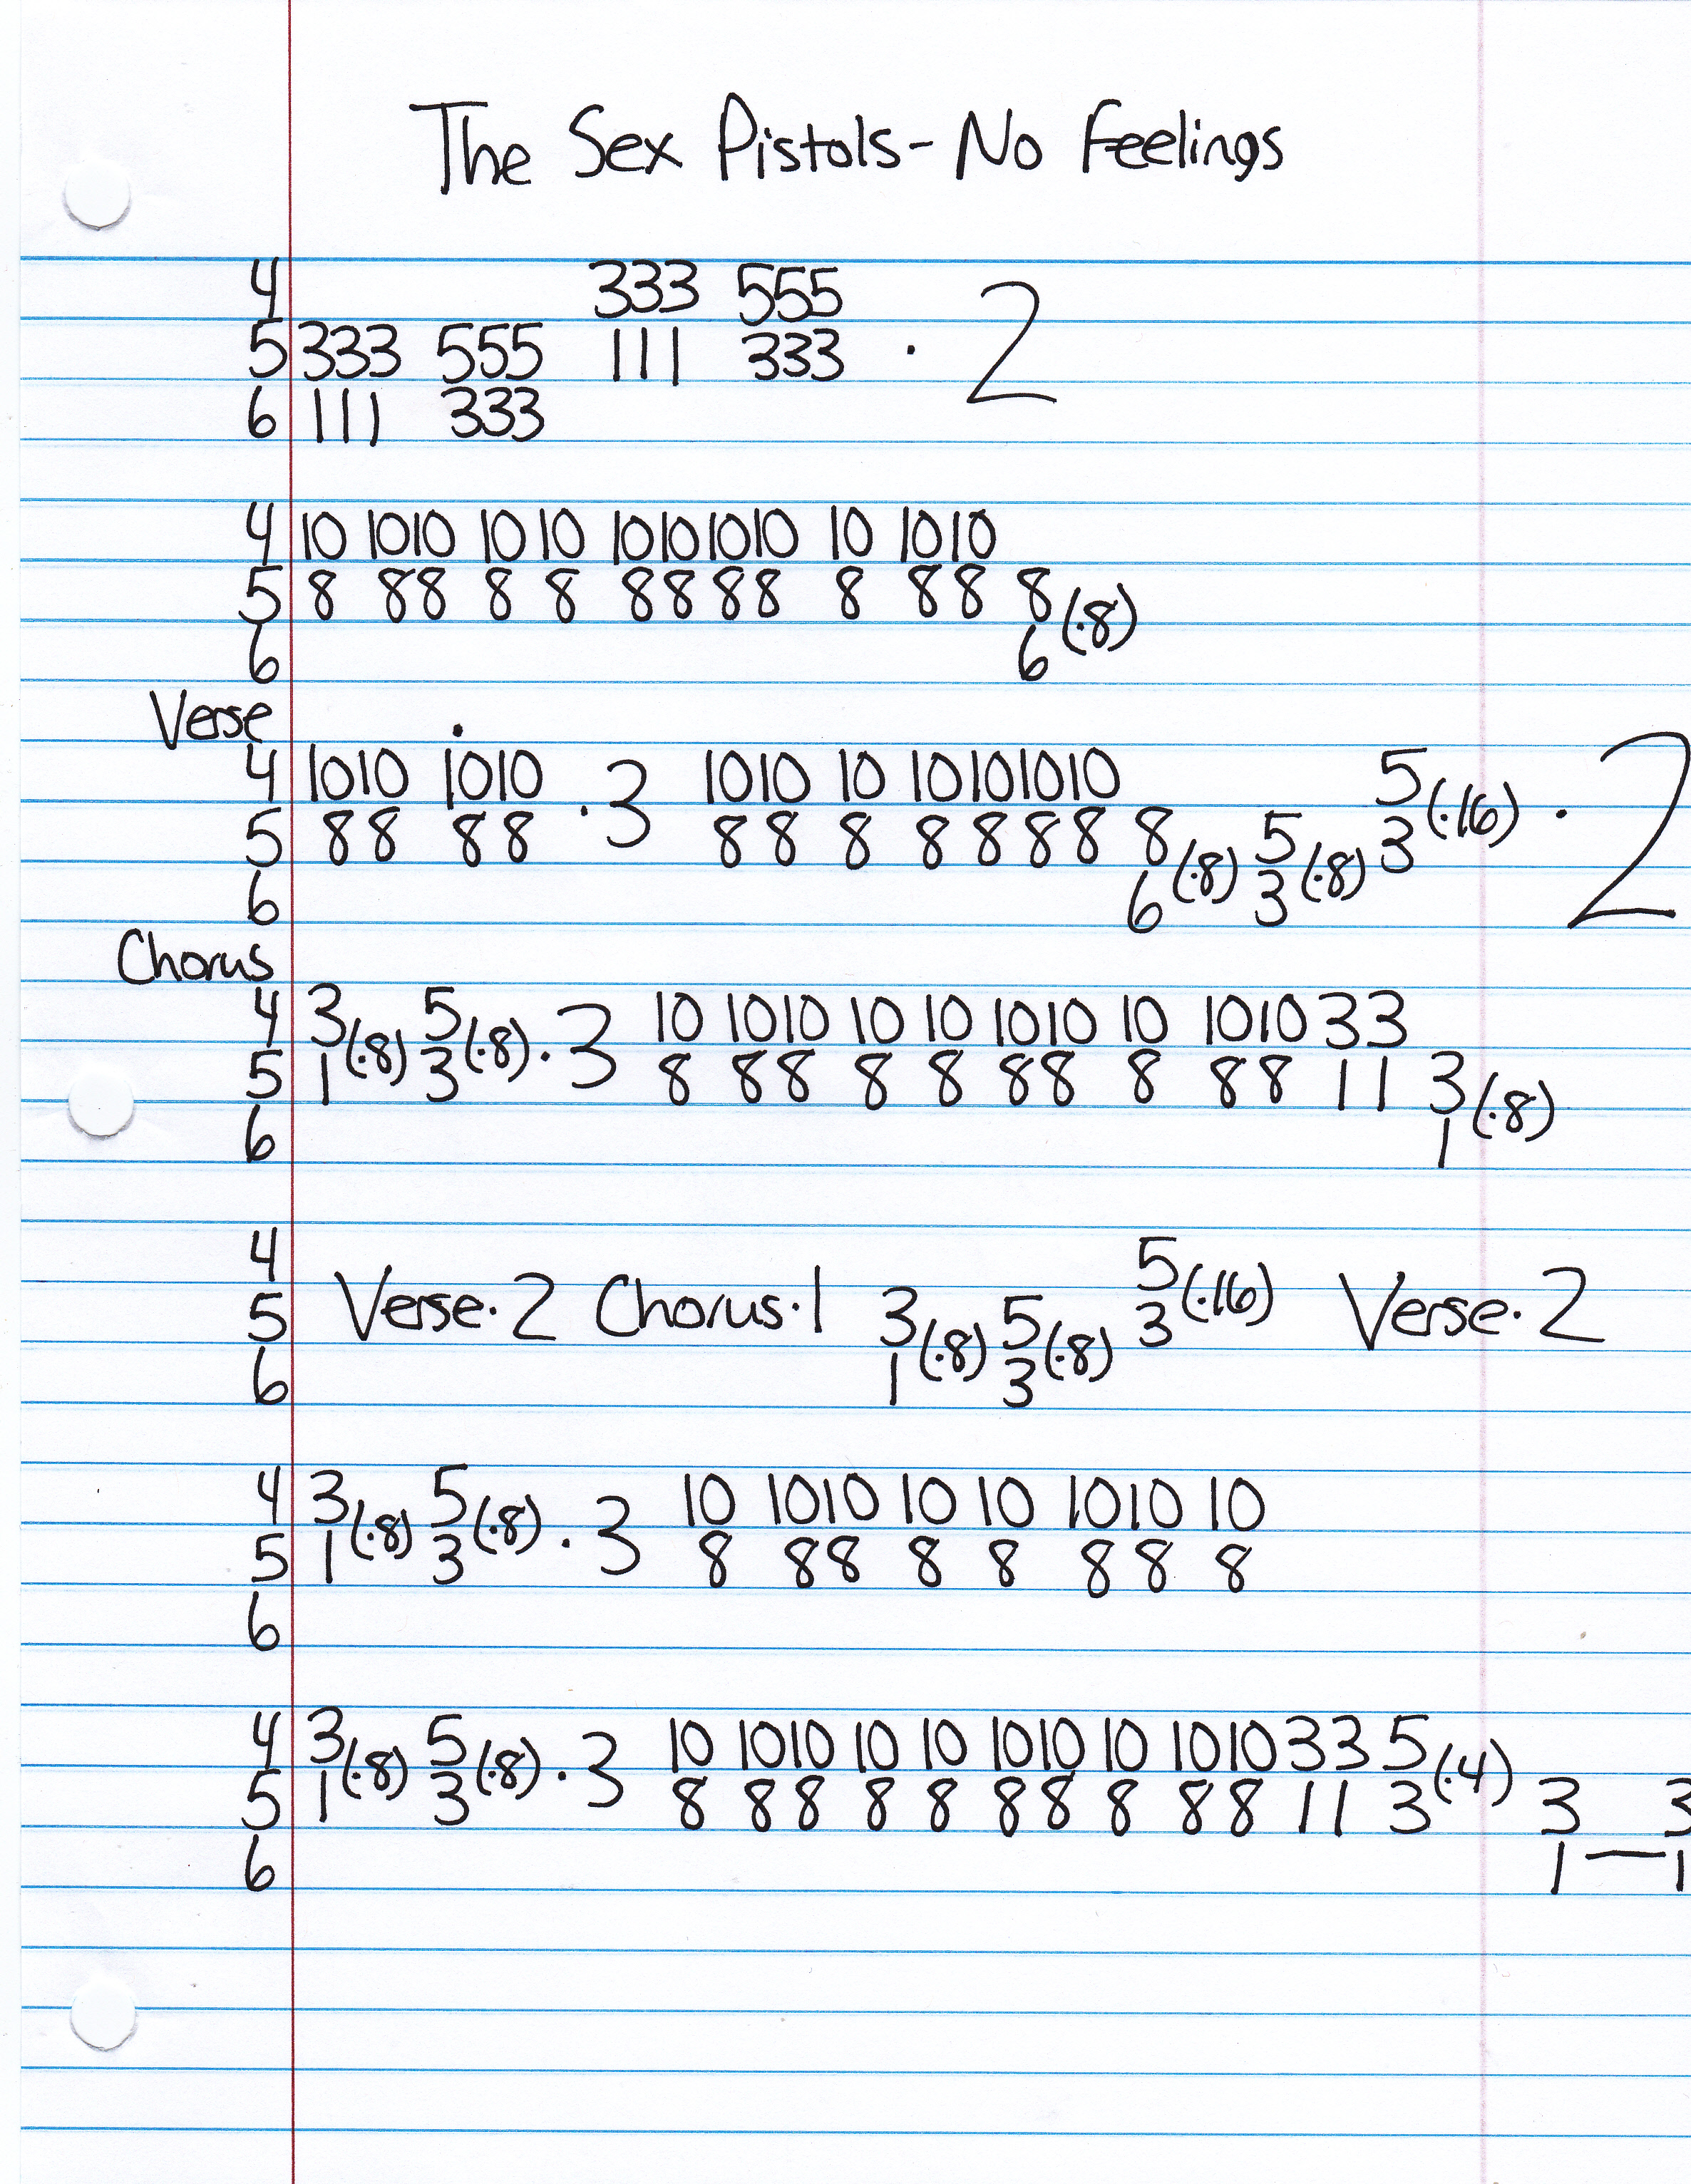 The Sex Pistols - No Feelings
4 333 555
5 333 555 111 333 · 2
6 111 333
4 10 1010 10 10 10101010 10 1010
5 8 88 8 8 8888 8 88 8 (·8)
6 6
Verse
4 1010 1010 · 3 1010 10 10101010 5 (·16) · 2
5 88 88 88 8 8888 8 (·8) 5 (·8) 3
6 6 3
Chorus
4 3 (·8) 5 (·8) · 3 10 1010 10 10 1010 10 1010 33
5 1 3 8 88 8 8 88 8 88 11 3 (·8)
6 1
4 5 (·16)
5 Verse · 2 Chorus · 1 3 (·8) 5 (·8) 3 Verse · 2
6 1 3
4 3 (·8) 5 (·8) · 3 10 1010 10 10 1010 10
5 1 3 8 88 8 8 88 8
6
4 3 (·8) 5 (·8) · 3 10 1010 10 10 1010 10 1010 33 5 (·4)
5 1 3 8 88 8 8 88 8 88 11 3 3 3
6 1 — 1